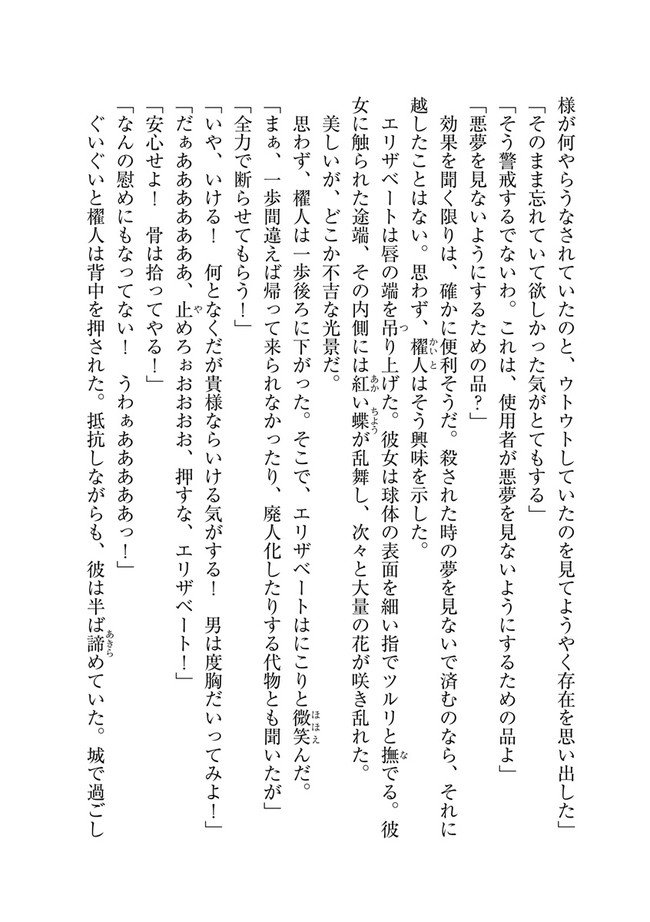 様が何やらうなされていたのと、ウトウトしていたのを見てようやく存在を思い出した」
「そのまま忘れていて欲しかった気がとてもする」
「そう警戒するでないわ。これは、使用者が悪夢を見ないようにするための品よ」
「悪夢を見ないようにするための品？」
効果を聞く限りは、確かに便利そうだ。殺された時の夢を見ないで済むのなら、それに
越したことはない。思わず、櫂人はそう興味を示した。
エリザベートは唇の端を吊り上げた。彼女は球体の表面を細い指でツルリと撫でる。彼
女に触られた途端、その内側には紅い蝶が乱舞し、次々と大量の花が咲き乱れた。
美しいが、どこか不吉な光景だ。
思わず、櫂人は一歩後ろに下がった。そこで、エリザベートはにこりと微笑んだ。
「まぁ、一歩間違えば帰って来られなかったり、廃人化したりする代物とも聞いたが」
「全力で断らせてもらう！」
「いや、いける！　何となくだが貴様ならいける気がする！　男は度胸だいってみよ！」
「だぁああああああ、止めろぉおおおお、押すな、エリザベート！」
「安心せよ！　骨は拾ってやる！」
「なんの慰めにもなってない！　うわぁあああああっ！」
ぐいぐいと櫂人は背中を押された。抵抗しながらも、彼は半ば諦めていた。城で過ごし